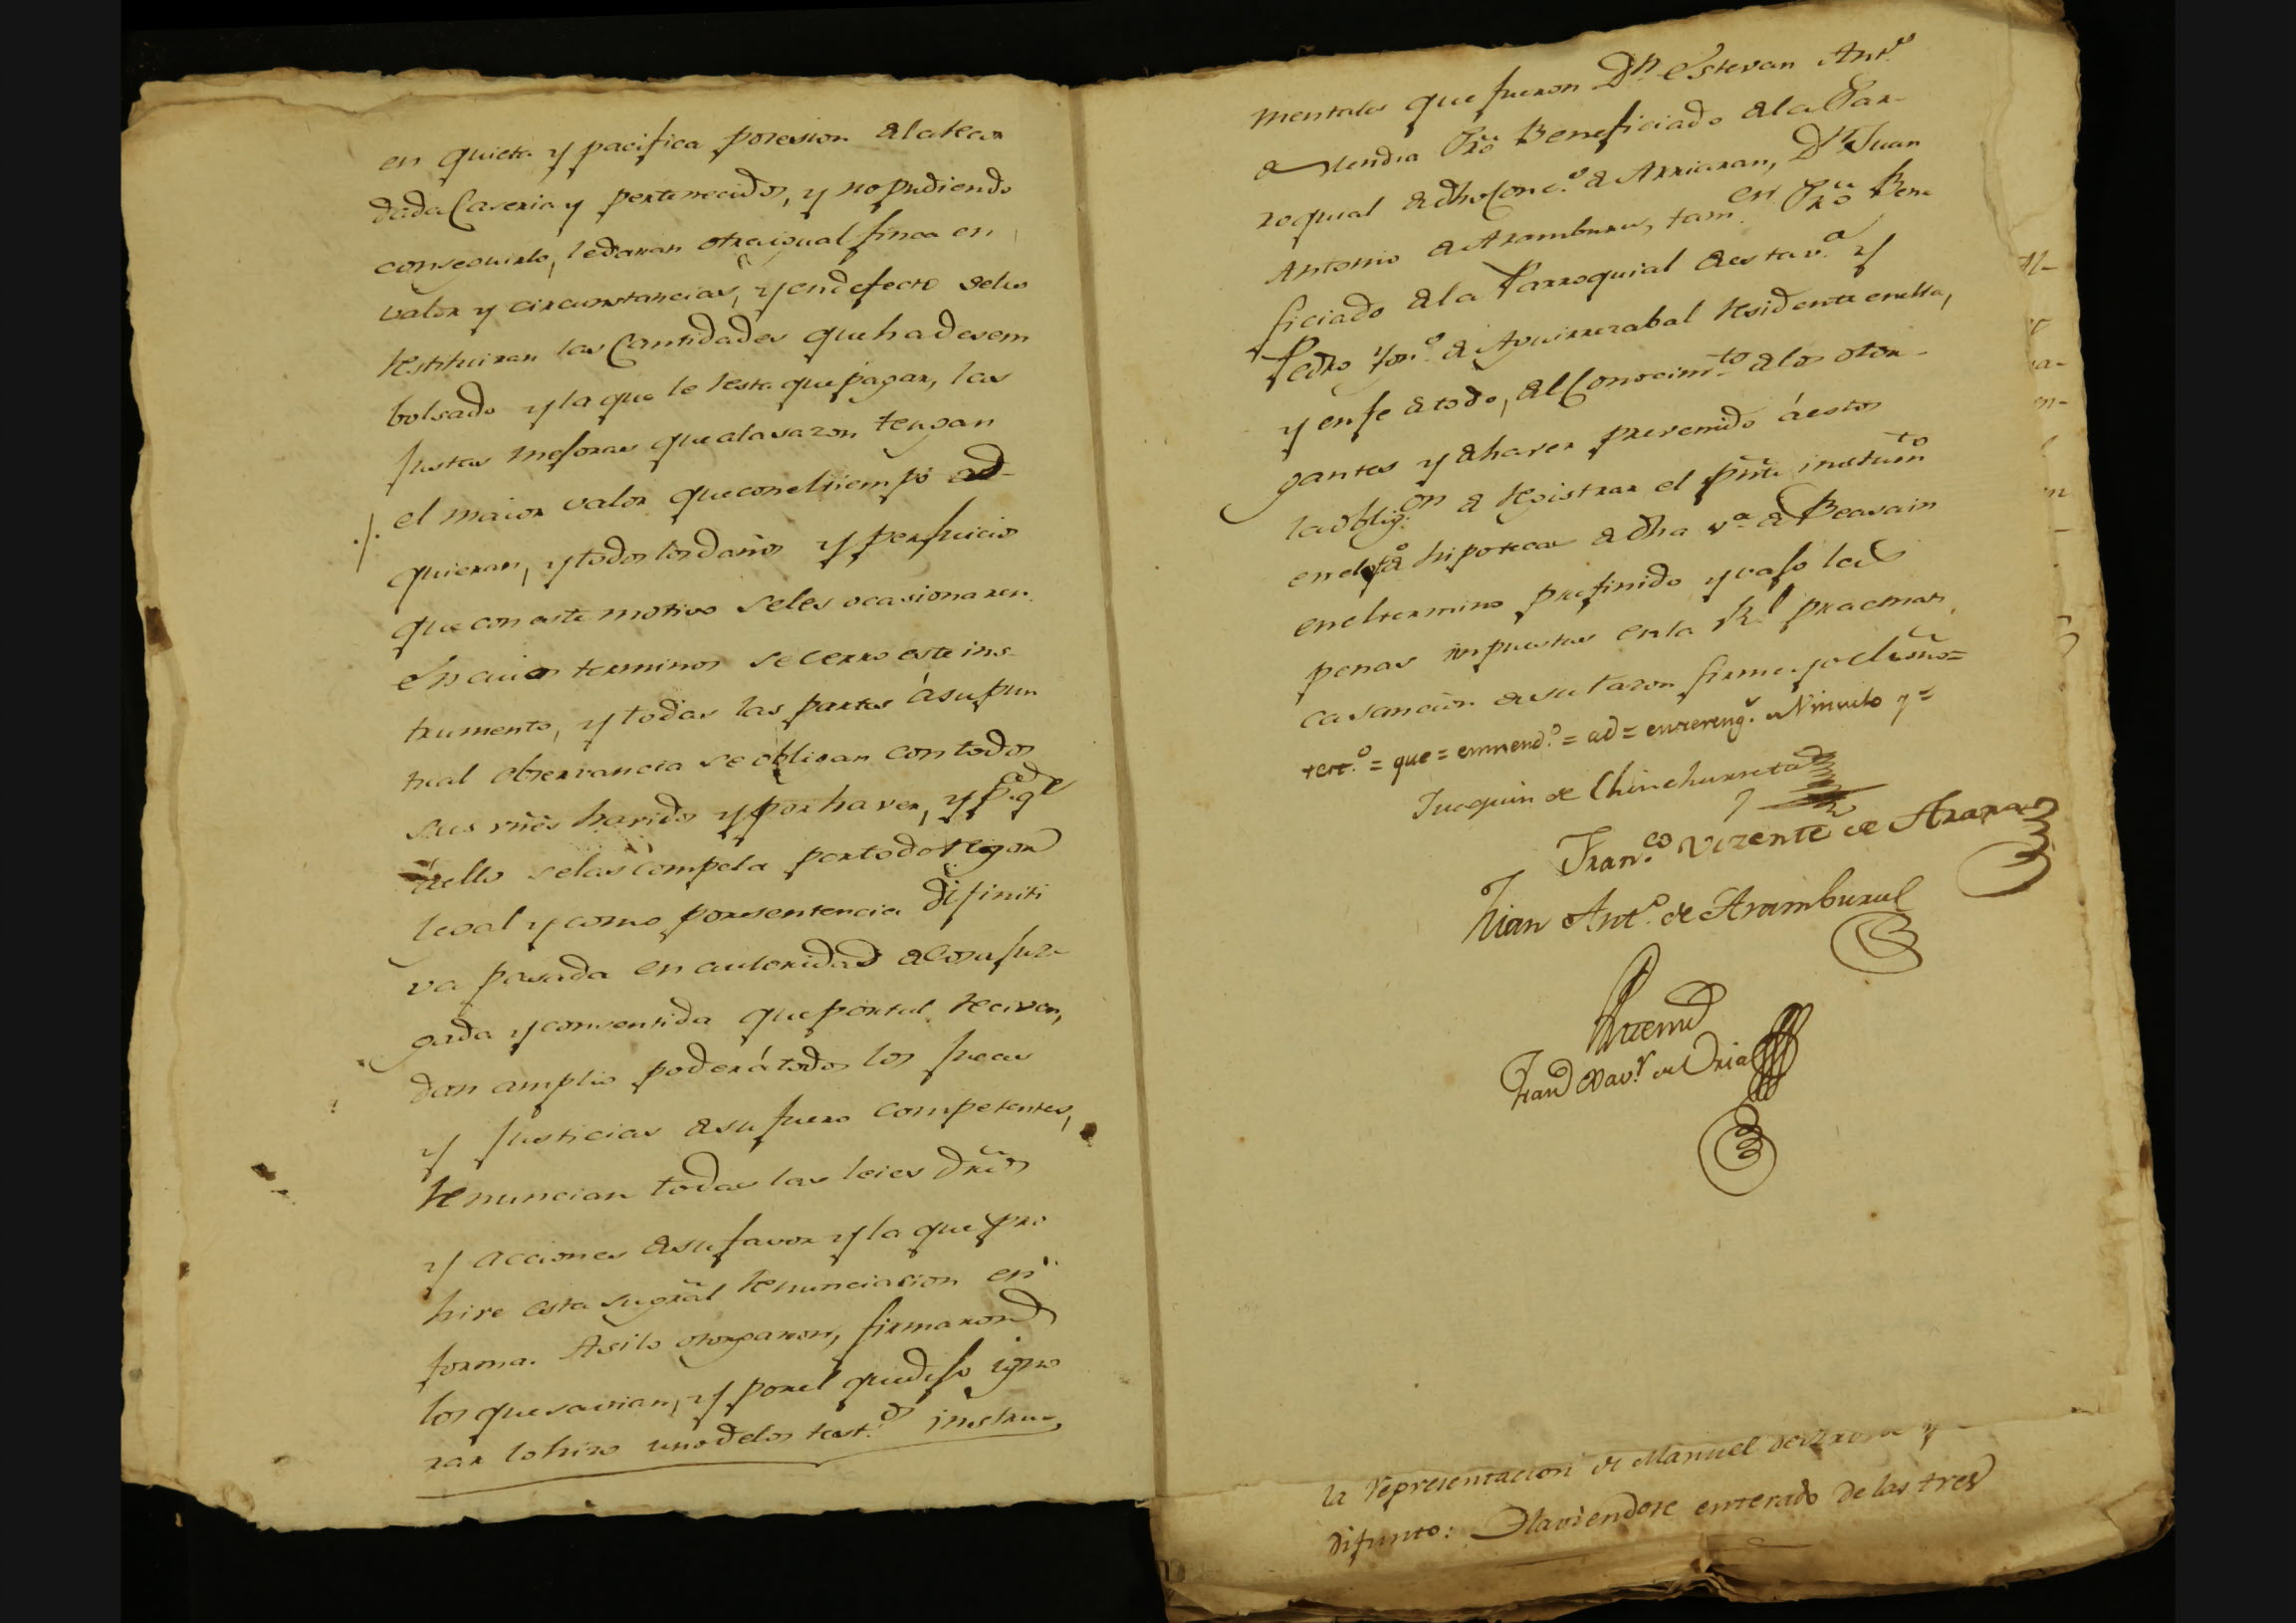 en quieta y pacifica posesion de la tea
dada Caseria y pertenecidos, y no pudiendo
conseguirlo, le daran otra igual finca en
valor y circunstancias, y en defecto se les
restituiran las Cantidades que ha desem
bolsado y la que le resta que pagar, las
justas mejoras que a la sazon tengan
el maior valor que con el tiempo ad-
quieran, y todos los daños y perjuicios
que con este motivo se les ocasionaren.
En cuios terminos se cerro este ins-
trumento, y todas las partes á su pun
tual observancia se obligan con todos
sus vñes havidos y por haver, y pª qe
á ello se las compela por todo rigor
legal y como por sentencia difiniti
va pasada en autoridad de cosa juz
gada y consentida que por tal reciven,
dan amplio poder á todos los jueces
y Justicias de su fuero competentes,
renuncian todas las leies dros
y acciones de su favor y la que pro
hive esta su gral renunciacion en
forma. Asi lo otorgaron, firmaron
los que savian, y por el que dijo igno
rar lo hizo uno de los testos instru-
mentales que fueron Dn Estevan Anto
de Pro Beneficiado de la Par-
roquial de dho Conc.o de Arriaran, Dn Juan
Antonio de Aramburu, tamen Pro Bene
ficiado de la Parroquial de esta va y
Pedro Ign.o de Aguirrezabal residente en ella,
y en fe de todo, del Conocimto de los otor-
gantes y de haver prevenido á estos
la oblig.on de registrar el pñte instrum.to
en el ofo de hipotecas de dha va de Beasain
en el termino prefinido y vajo las
penas impuestas en la Rl pracmati
ca sancion de su razon firme yo el ssno=
test.o = que = enmend.o = ad = entrereng.s = y =
Juaquin de Chinchurreta
Fran.co Vizente de Arana
Juan Ant.o de Aramburu
Antemi
Fran Xav.r de Oria
la representacion de Manuel de y
difunto: Haviendose enterado de las tres